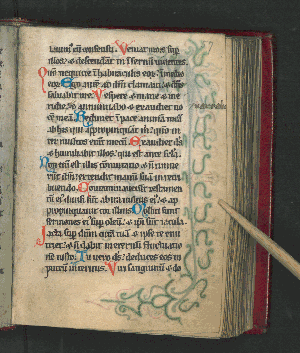 lauimꝰ cū consensu. Veniat mors sup
illos: ⁊ descendant in īfernū uiuentes.
Qm̄ nequicie ī habitaculis eoꝝ: ī medio
eoꝝ. Ego autē ad dm̄ clamaui: ⁊ dn̄s
saluabit me. Vespere ⁊ mane ⁊ me
ridie: ⁊ annunciabo ⁊ exaudiet uo
cē meā. Redimet ī pace animā meā
ab his qui appropinquant m̄: qm̄ in
ter multos erāt mecū. Exaudiet ds̄
⁊ humiliabit illos: qui est ante scl̄a.
Non enī est illis cōmutatio: ⁊ n̄ timue
runt dm̄: extendit manū suā in retri
buendo. Contaminauerūt testamen
tū eiꝰ diuisi sūt ab ira uultus eiꝰ: ⁊ ap
propinquauit cor illius. Molliti sunt
sermones eiꝰ sup oleū: ⁊ ipsi sūt iacula.
Iacta sup dnm̄ curā tuā: ⁊ ipse te enu
triet: ⁊ n̄ dabit in eternū fluctuatio
nē iusto. Tu uero ds̄: deduces eos in
puteū interitus. Viri sanguinū ⁊ do